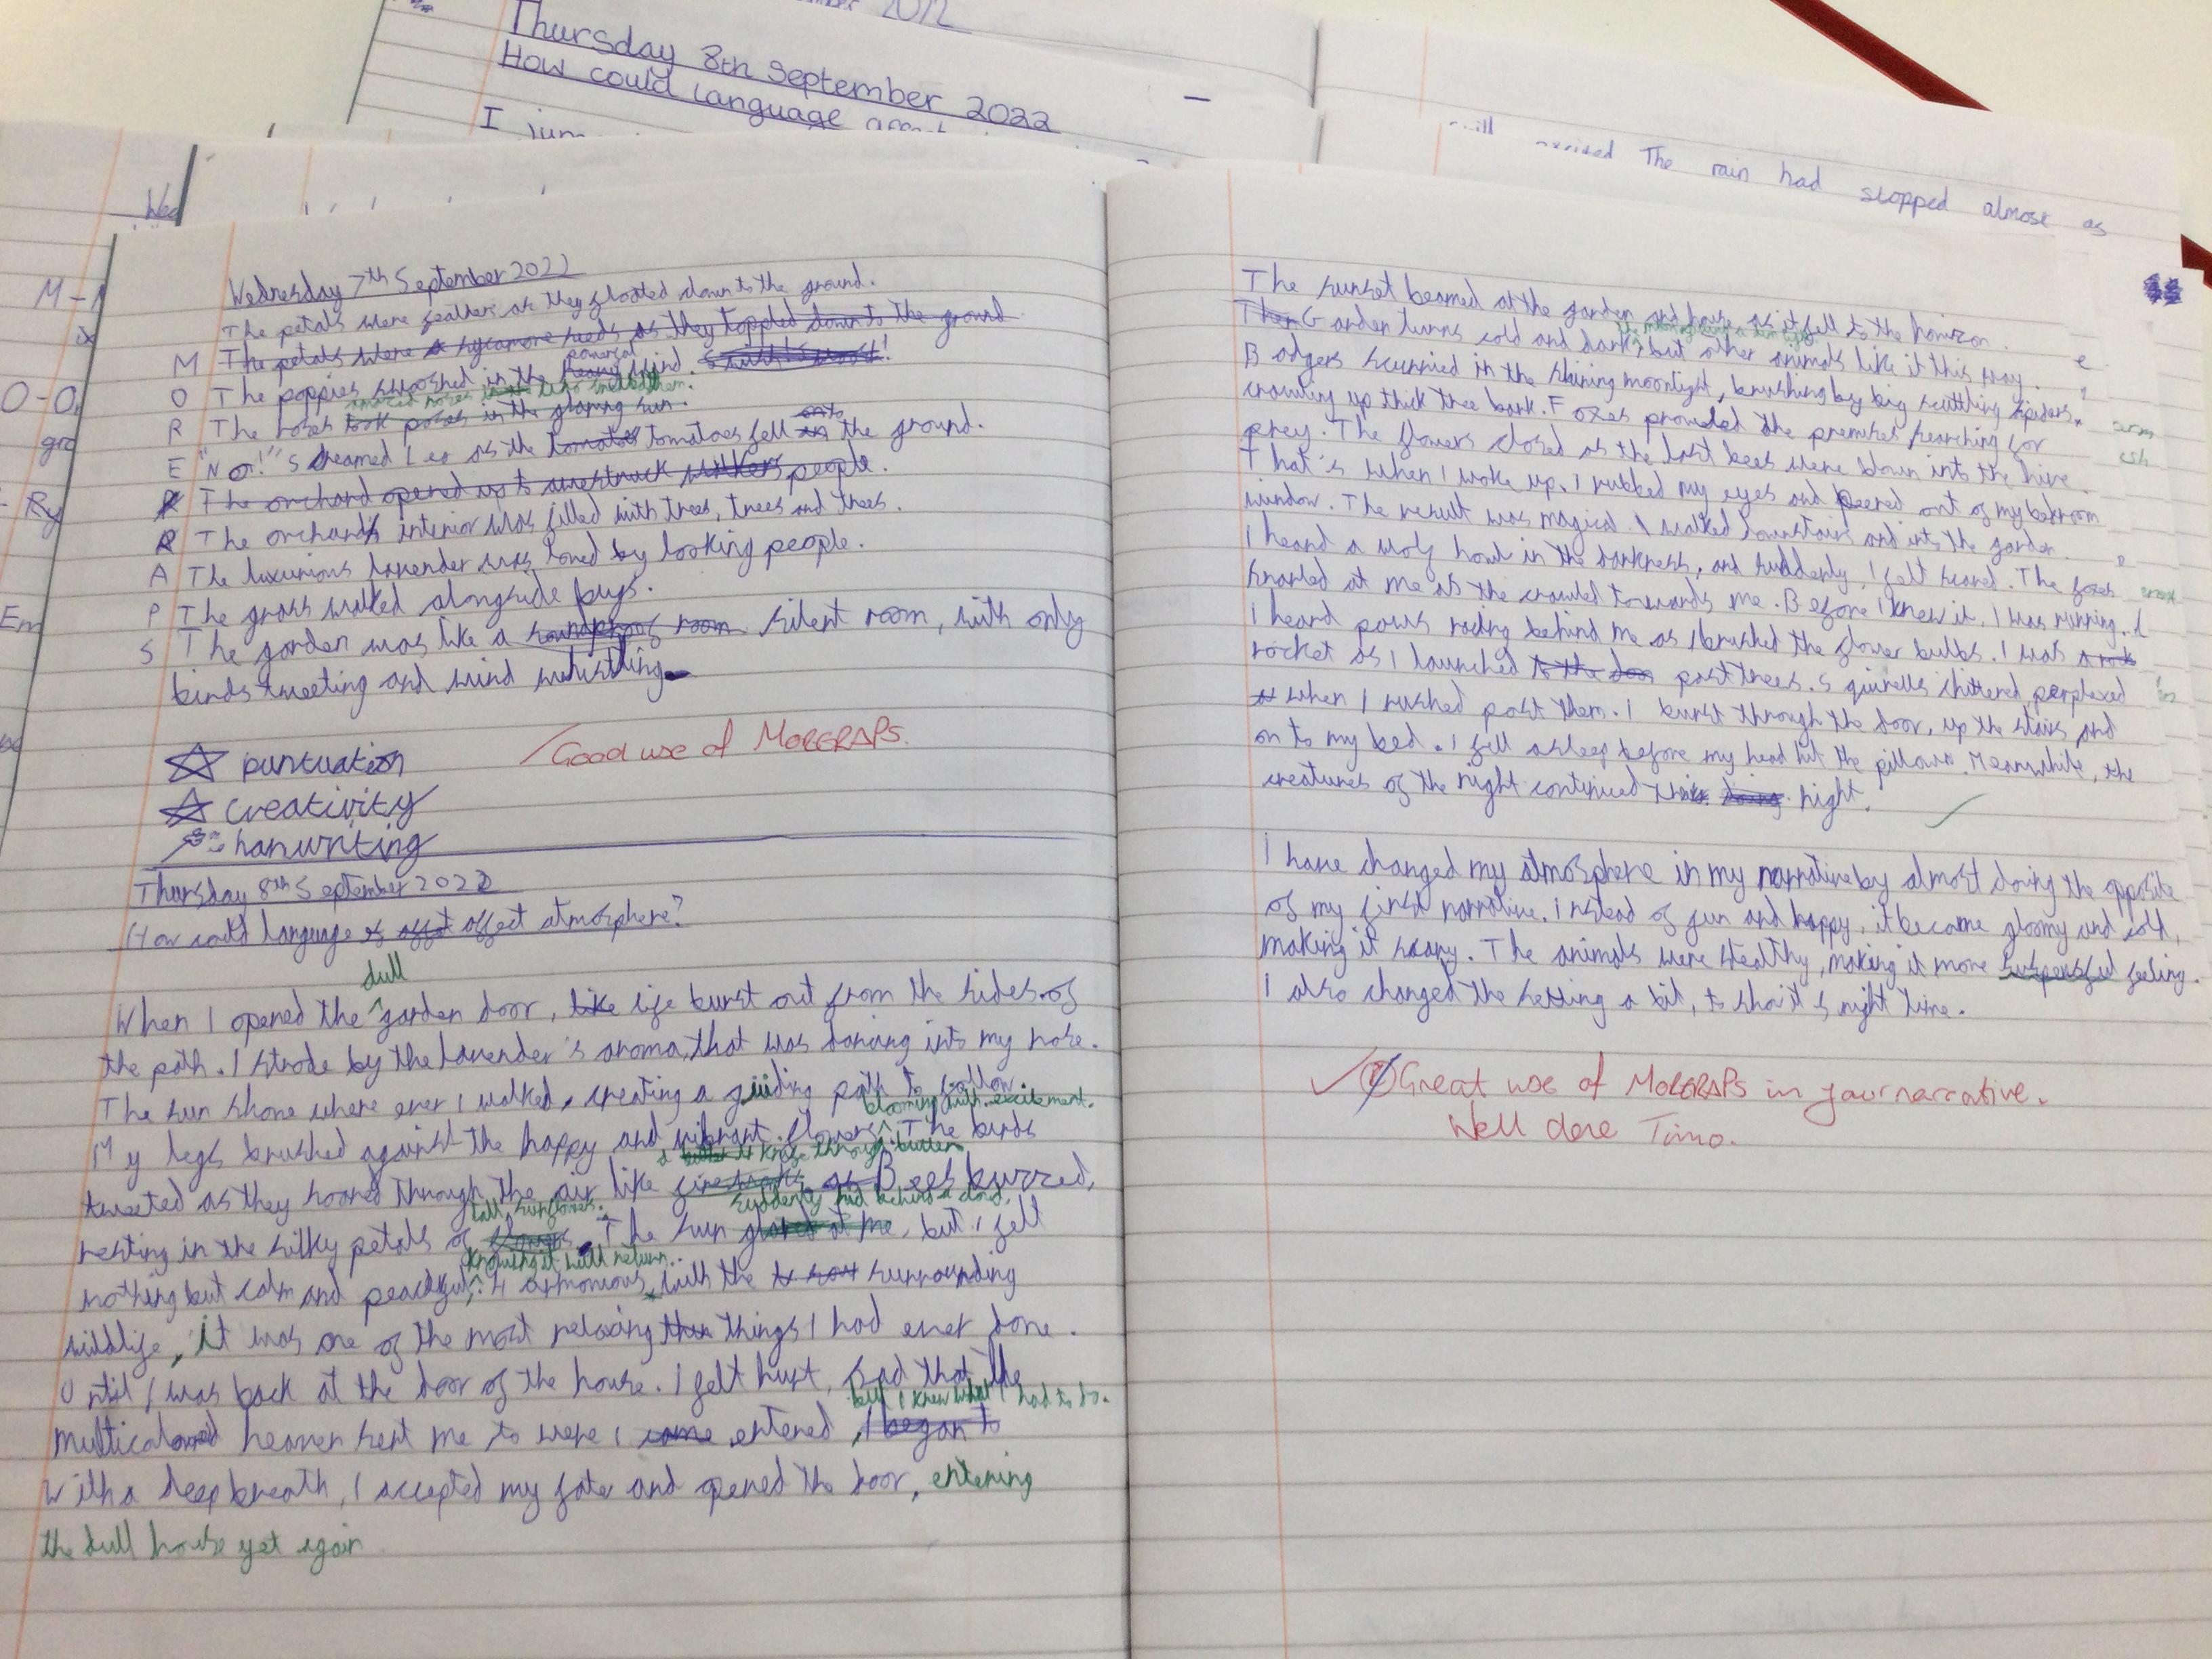 2022
Thursday 8th September 2022
How could language
I
The rain had stopped almost as
Wed
M -
O - O
Ry
Em
Wednesday 7th September 2022
The petals were feathers as they floated down to the ground.
M The petals were a sycamore seeds as they toppled down to the ground
powerful
O The poppies swooshed in the heavy wind.
R The roses took poses in the glaming sun.
E "No!" Screamed Leo as the tomatos tomatoes fell in onto the ground.
R The orchard opened up to awestruck walkers people.
R The orchards interior was filled with trees, trees and trees.
A The luxurious lavender was loved by looking people.
P The grass walked alongside bugs.
S The garden was like a soundproof room silent room, with only
birds tweeting and wind whistling
Good use of MORERAPs.
puntuation
creativity
hanwriting
Thursday 8th September 2022
How could language affect atmosphere?
dull
When I opened the garden door, like life burst out from the sides of
the path. I strode by the lavender's aroma, that was dancing into my nose.
The sun shone where ever I walked, creating a guiding path to follow.
blooming with excitement.
My legs brushed against the happy and vibrant flowers. The birds
a knife through butter
tweeted as they soared through the air like Bees buzzed,
tall sunflowers. suddenly hid behind a cloud,
resting in the silky petals of The sun glared at me, but I felt
knowing it will return.
nothing but calm and peacful. Harmonious with the surrounding
wildlife, it was one of the most relaxing things I had ever done.
Until I was back at the door of the house. I felt hurt, sad that the
but I knew what I had to do.
multicoloured heaven sent me to were I came entered, I began to
With a deep breath, I accepted my fate and opened the door, entering
the dull house yet again
The sunset beamed at the garden and house as it fell to the horizon.
Then Garden turns cold and dark, but other animals like it this way.
Badgers scurried in the shining moonlight, brushing by big scuttling spiders,
crawling up thick tree bark. Foxes prowled the premises searching for
prey. The flowers closed as the last bees were blown into the hive.
That's when I woke up. I rubbed my eyes and peered out of my bedroom
window. The result was magical. I walked downstairs and into the garden.
I heard a wolf howl in the darkness, and suddenly, I felt scared. The foxes
snarled at me as the crawled towards me. Before I knew it, I was running. I
I heard paws racing behind me as I brushed the flower bulbs. I was a rock
rocket as I launched to the doo past trees. Squirells chittered, perplexed
when I rushed past them. I burst through the door, up the stairs and
on to my bed. I fell asleep before my head hit the pillow. Meanwhile, the
creatures of the night continued night.
I have changed my atmosphere in my narrative by almost doing the opposite
of my first narrative. Instead of fun and happy, it became gloomy and cold,
making it scary. The animals were stealthy, making it more suspensful feeling.
I also changed the setting a bit, to night time.
Great use of MORERAPs in your narrative.
Well done Timo.